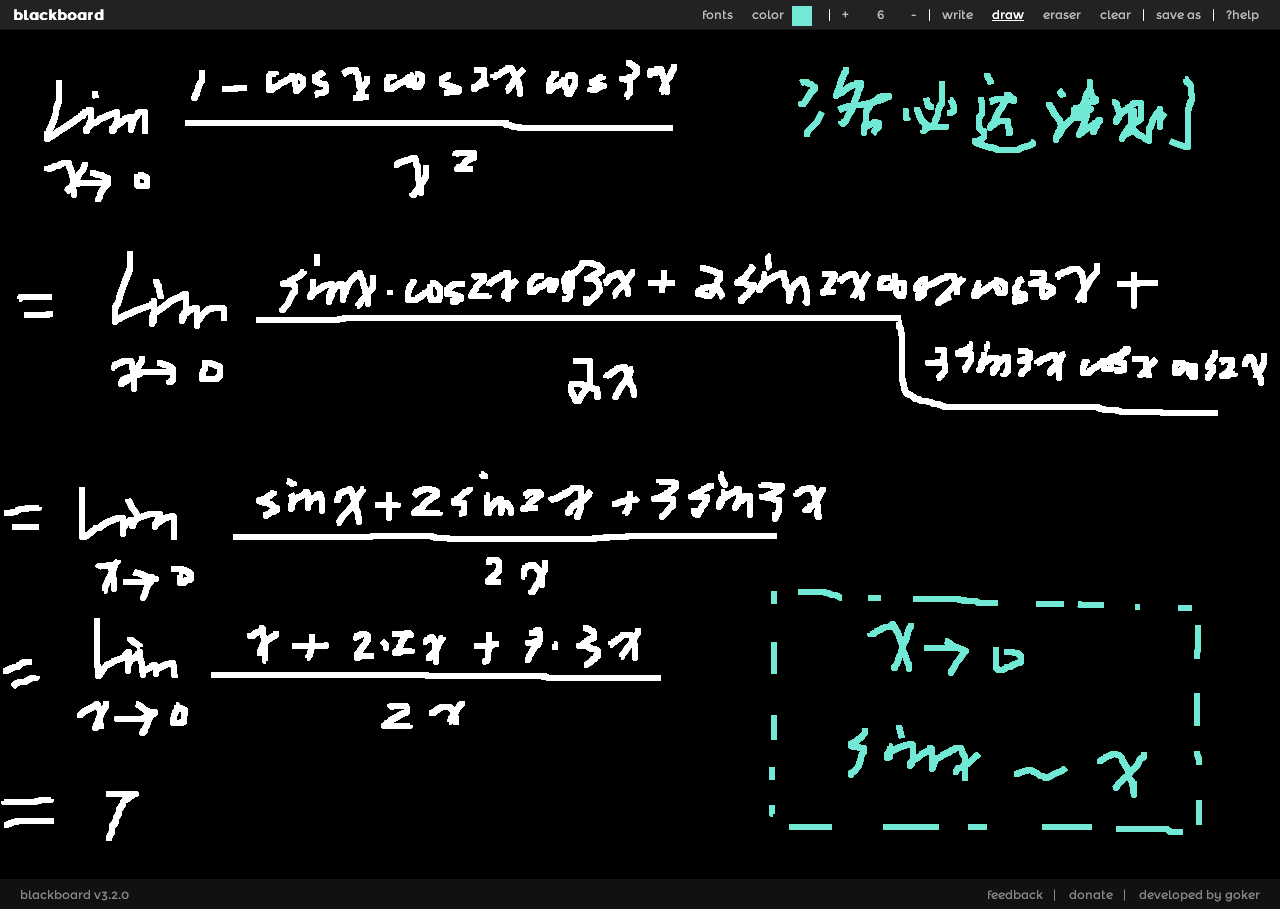 blackboard fonts color + 6 - write draw eraser clear save as ?help
lim x→0 (1 - cosxcos2x cos3x) / x² 洛必达法则
= lim x→0 (sinx·cos2xcos3x + 2sin2xcosxcos3x + 3sin3x cosx cos2x) / 2x
= lim x→0 (sinx+2sin2x + 3sin3x) / 2x
= lim x→0 (x + 2·2x + 3·3x) / 2x
x→0
sinx ~ x
= 7
blackboard v3.2.0 feedback | donate | developed by goker